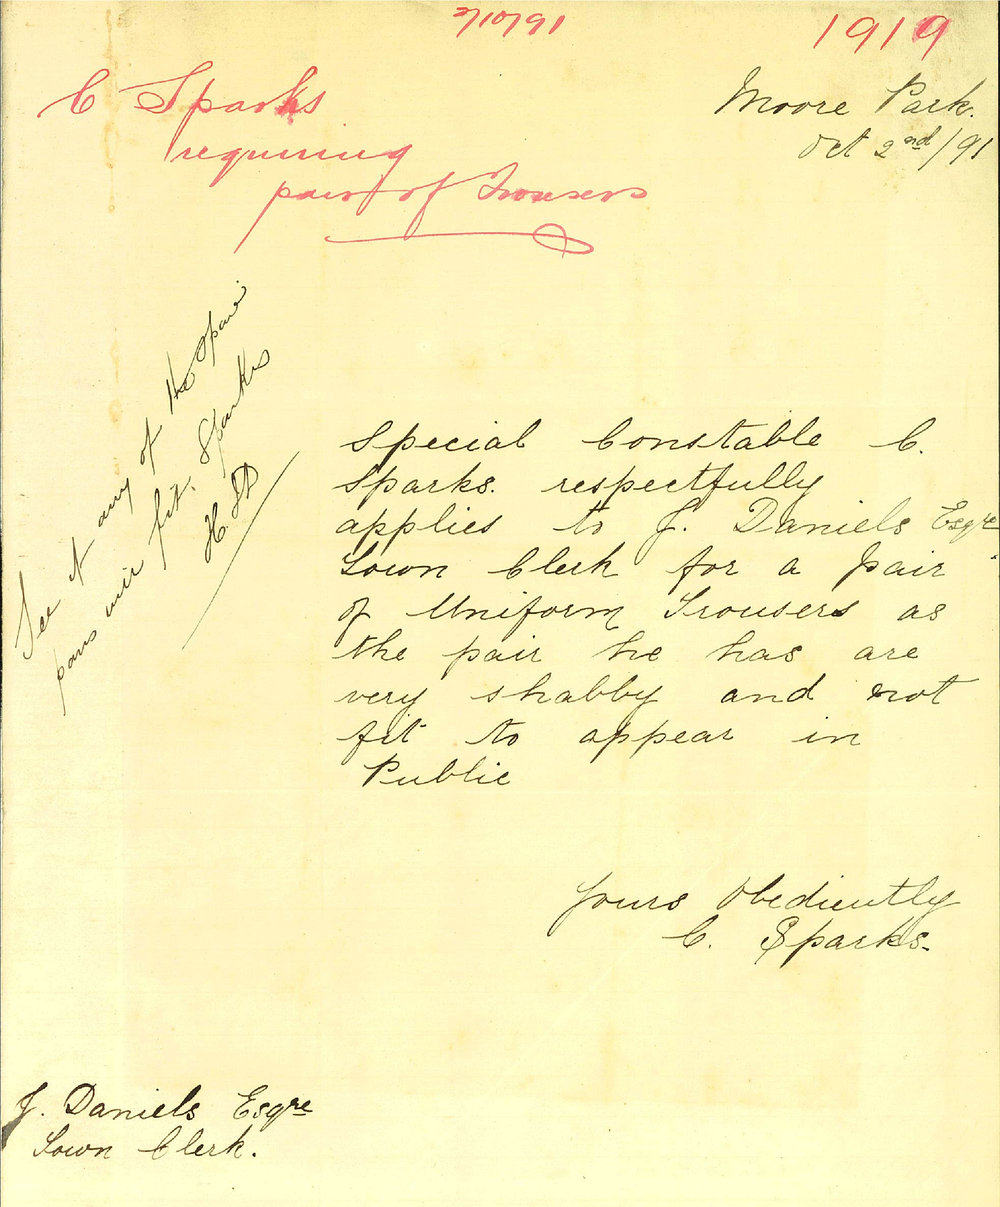 2/10/91
1919
C Sparks
requiring
pair of Trousers
Moore Park.
Oct 2nd/91
See if any of the spare
pairs will fit. Sparks
Special Constable C.
Sparks. respectfully
applies to J. Daniels Esqre
Town Clerk for a pair
of Uniform Trousers as
the pair he has are
very shabby and not
fit to appear in
Public
Yours Obediently
C. Sparks.
J. Daniels Esqre
Town Clerk.